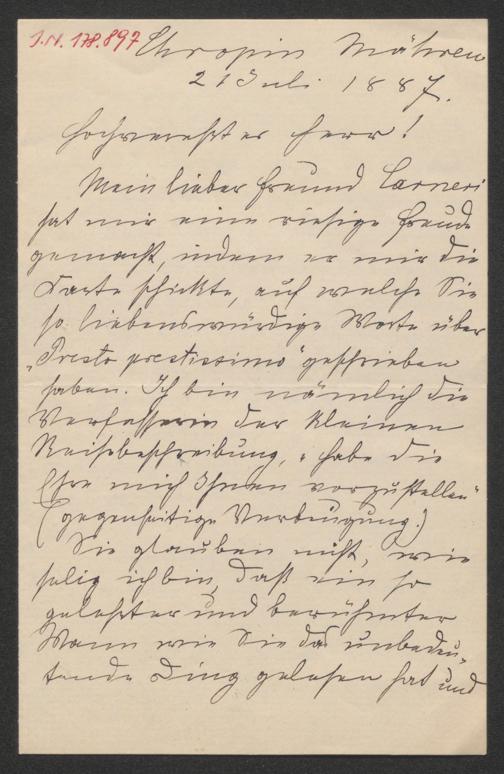 J.N. 178.897
Chropin Mähren
21 Juli 1887.
Hochverehrter Herr!
Mein lieber Freund Carneri
hat mir eine riesige Freude
gemacht, indem er mir die
Karte schickte, auf welche Sie
so liebenswürdige Worte über
„Presto prestissimo" geschrieben
haben. Ich bin nämlich die
Verfasserin der kleinen
Reisebeschreibung, „habe die
Ehre mich Ihnen vorzustellen"
(gegenseitige Verbeugung.)
Sie glauben nicht, wie
selig ich bin, daß ein so
gelehrter und berühmter
Mann wie Sie das unbedeu-
tende Ding gelesen hat und